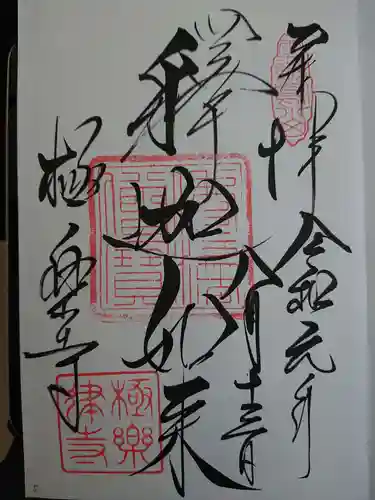 奉拝
令和元年
八月十三日
釋迦如来
極楽寺
極樂律寺